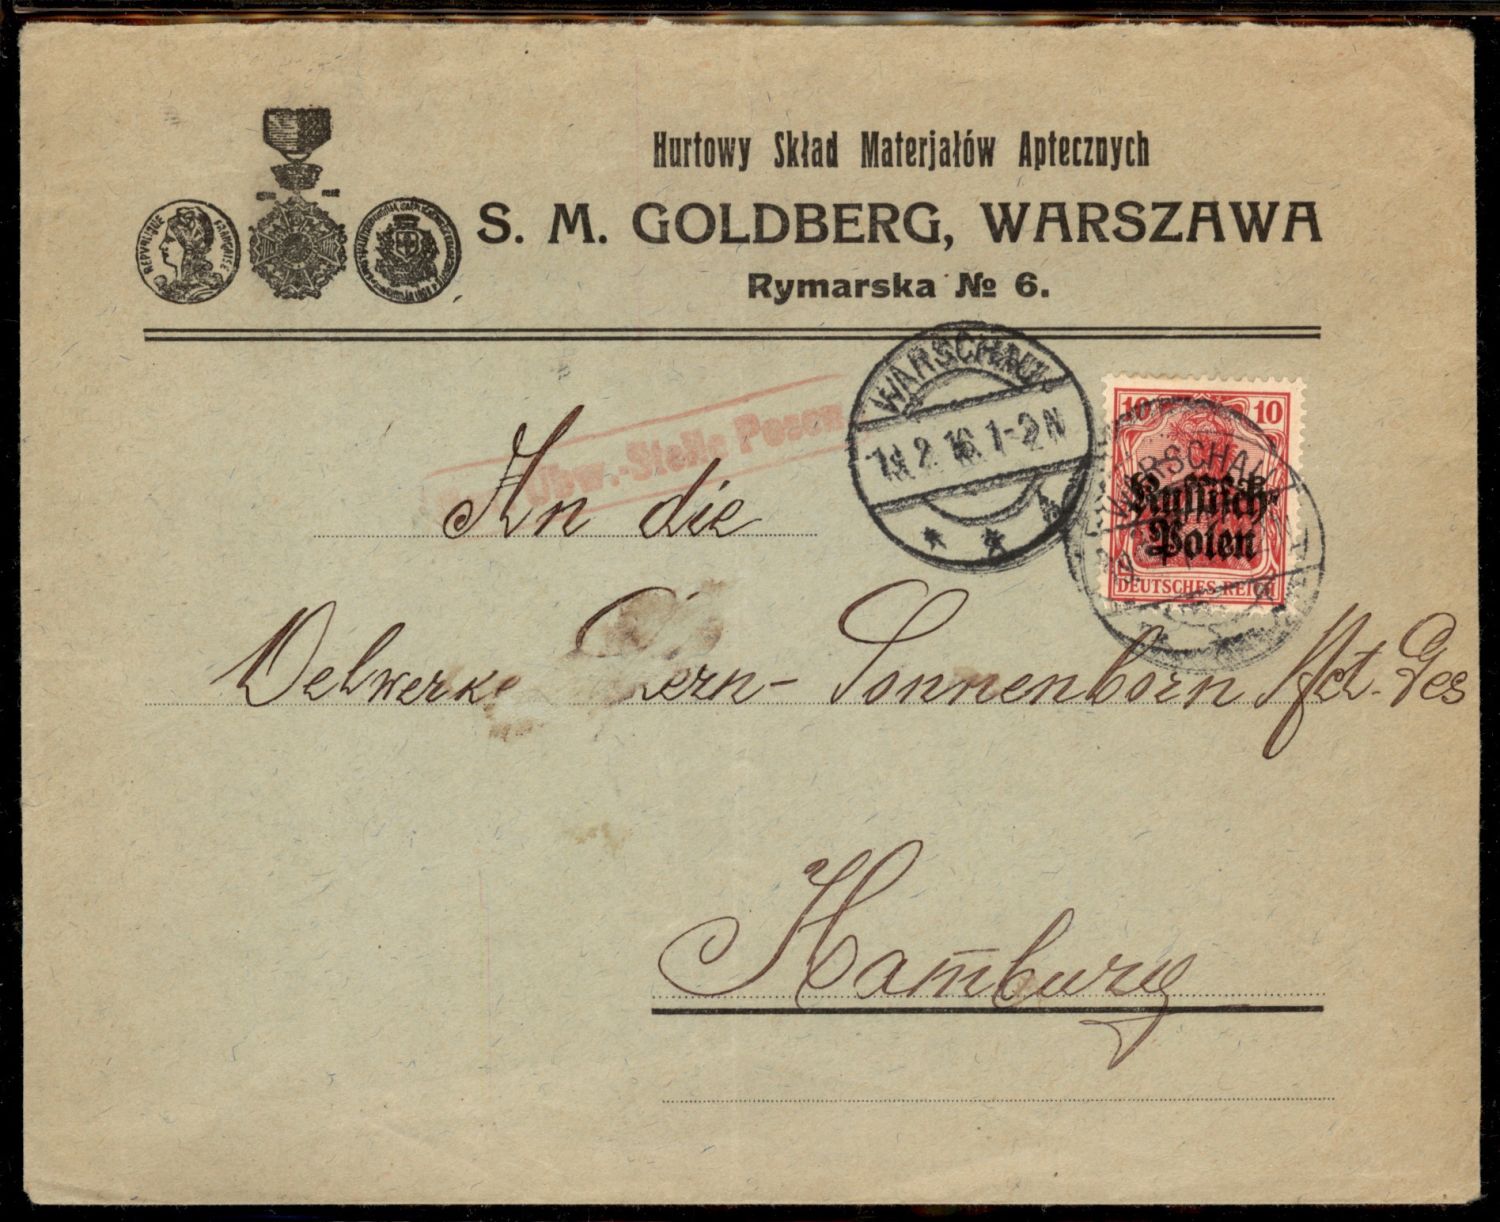 Hurtowy Skład Materjałów Aptecznych
S. M. GOLDBERG, WARSZAWA
Rymarska № 6.
REPUBLIQUE FRANÇAISE
WARSCHAU
2. 16. 1-2 N
10 10
WARSCHAU
Russisch-
Polen
DEUTSCHES REICH
Übw.-Stelle Posen
An die
Oelwerke Stern- Sonnenborn Act. Ges
Hamburg